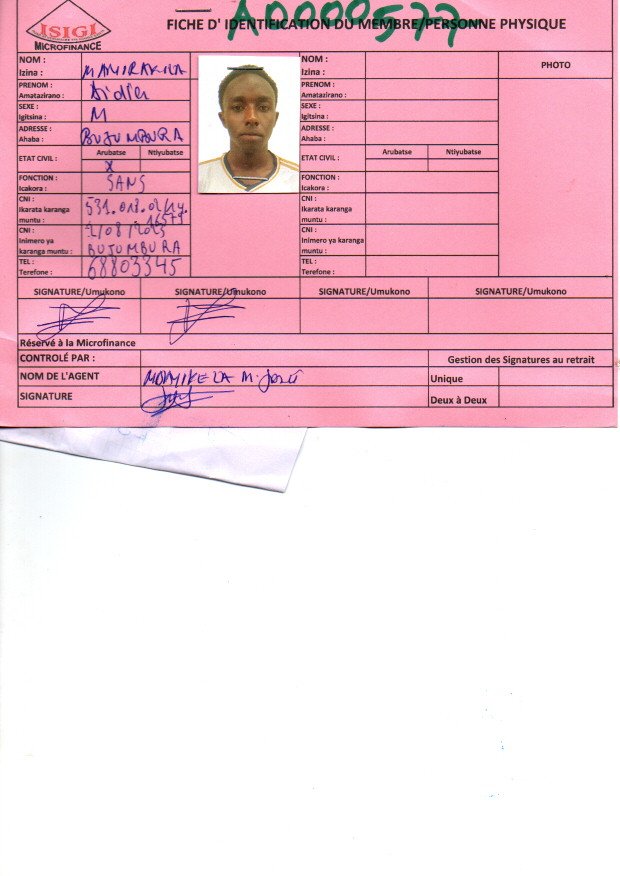 A0000577
ISIGI
MICROFINANCE
FICHE D' IDENTIFICATION DU MEMBRE/PERSONNE PHYSIQUE
NOM :
Izina :
MANIRAKIZA
PRENOM :
Amatazirano :
Didier
SEXE :
Igitsina :
M
ADRESSE :
Ahaba :
BUJUMBURA
ETAT CIVIL :
Arubatse
Ntiyubatse
X
FONCTION :
Icakora :
SANS
CNI :
Ikarata karanga
muntu :
CNI :
Inimero ya
karanga muntu :
BUJUMBURA
TEL :
Terefone :
68803345
NOM :
Izina :
PRENOM :
Amatazirano :
SEXE :
Igitsina :
ADRESSE :
Ahaba :
ETAT CIVIL :
Arubatse
Ntiyubatse
FONCTION :
Icakora :
CNI :
Ikarata karanga
muntu :
CNI :
Inimero ya
karanga muntu :
TEL :
Terefone :
PHOTO
SIGNATURE/Umukono
SIGNATURE/Umukono
SIGNATURE/Umukono
SIGNATURE/Umukono
Réservé à la Microfinance
CONTROLÉ PAR :
Gestion des Signatures au retrait
NOM DE L'AGENT
Unique
SIGNATURE
Deux à Deux